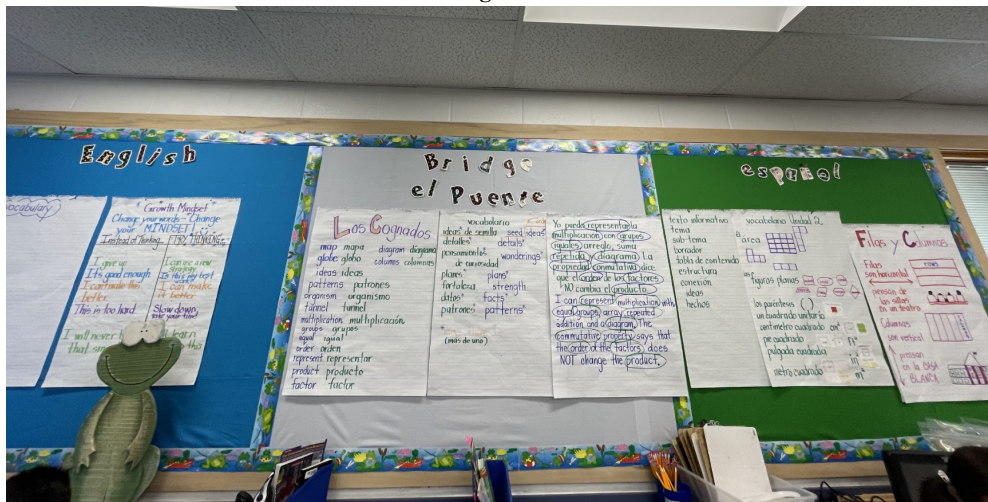 English
vocabulary
Growth Mindset
Change your words - Change
your MINDSET!
Instead of Thinking... TRY THINKING...
I give up
It's good enough
I can't make this
better.
This is too hard.
I will never
that
I can use a new
strategy
Is this my best
I can make
it better
Slow down,
learn
this
Bridge
el Puente
Los Cognados
map mapa
globe globo
ideas ideas
patterns patrones
organism organismo
tunnel túnel
multiplication multiplicación
groups grupos
equal igual
order orden
represent representar
product producto
factor factor
diagram diagrama
columns columnas
vocabulario
ideas de semilla seed ideas
detalles details
pensamientos
de curiosidad wonderings
planes plans
fortaleza strength
datos facts
patrones patterns
(más de uno)
Yo puedo representar la
multiplicación con grupos
iguales, arreglo, suma
repetida y diagrama. La
propiedad conmutativa dice
que el orden de los factores
NO cambia el producto.
I can represent multiplication with
equal groups, array, repeated
addition and a diagram. The
commutative property says that
the order of the factors does
NOT change the product.
español
texto informativo
tema
sub-tema
borrador
tabla de contenido
estructura
conexión
ideas
hechos
vocabulario Unidad 2
área
figuras planas
los paréntesis ( )
un cuadrado unitario
centímetro cuadrado cm²
pie cuadrado
pulgada cuadrada
metro cuadrado m²
Filas y Columnas
Filas
son horizontal
piensan de
las sillas
en un teatro
Columnas
son vertical
piensan
en la CASA
BLANCA